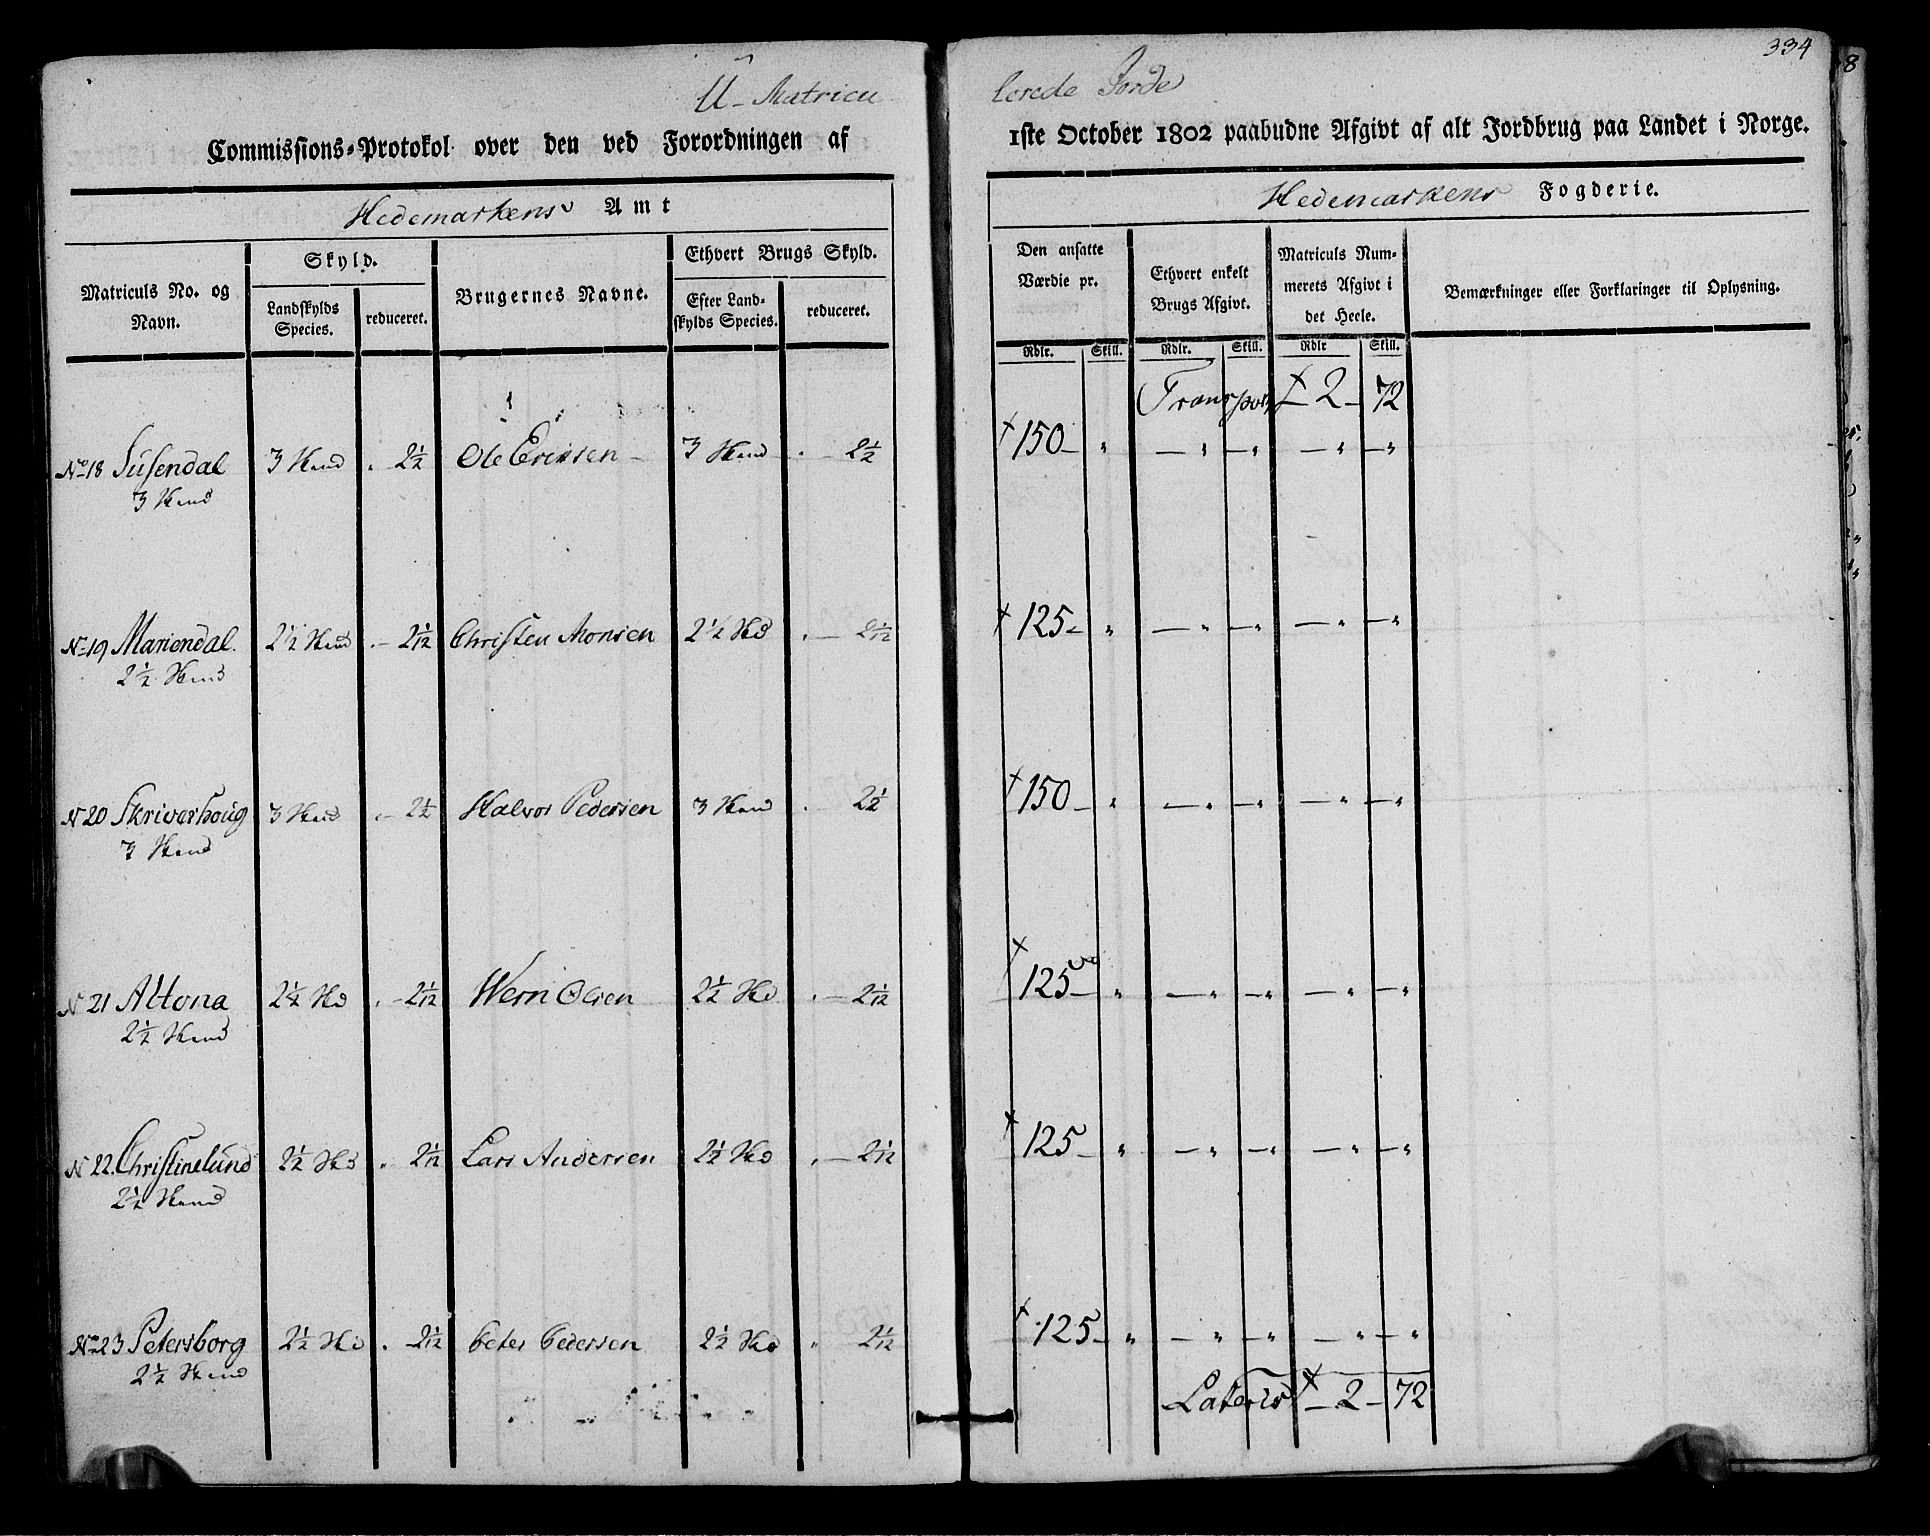 334
8
U-Matricu
lerede Jorde
Commissions-Protokol over den ved Forordningen af
1ste October 1802 paabudne Afgivt af alt Jordbrug paa Landet i Norge.
Hedemarkens Amt
Hedemarkens Fogderie.
Matriculs No. og Navn.
Skyld.
Landskylds Species.
reduceret.
Brugernes Navne.
Ethvert Brugs Skyld.
Efter Landskylds Species.
reduceret.
Den ansatte Værdie pr.
Ethvert enkelt Brugs Afgivt.
Matriculs Nummerets Afgivt i det Heele.
Bemærkninger eller Forklaringer til Oplysning.
Rdlr. Skill. Rdlr. Skill. Rdlr Skill.
Transport 2 - 72
No 18 Susendal 3 Hund " 2½ Ole Ericksen 3 Hund " 2½ 150 - " — " — " — " — "
3 Hund
No 19 Mariendal 2½ Hund " - 2 1/12 Christen Monsen 2½ Hd " — 2 1/12 125 - " — " — " — " — "
2½ Hund
N 20 Skriverhoug 3 Hund " - 2½ Halvor Pedersen 3 Hund " 2½ 150 - " — " — " — " — "
3 Hund
N 21 Altona 2½ Hd " - 2 1/12 Wern Olsen 2½ Hd " — 2 1/12 125 - " — " — " — " — "
2½ Hund
N 22. Christinelund 2½ Hd " 2 1/12 Lars Andersen 2½ Hd " — 2 1/12 125 - " — " — " — " — "
2½ Hund
No 23 Petersborg 2½ Hd " - 2 1/12 Peter Pedersen 2½ Hd " 2 1/12 125 - " — " — " — " — "
2½ Hund
Lateris - 2 - 72